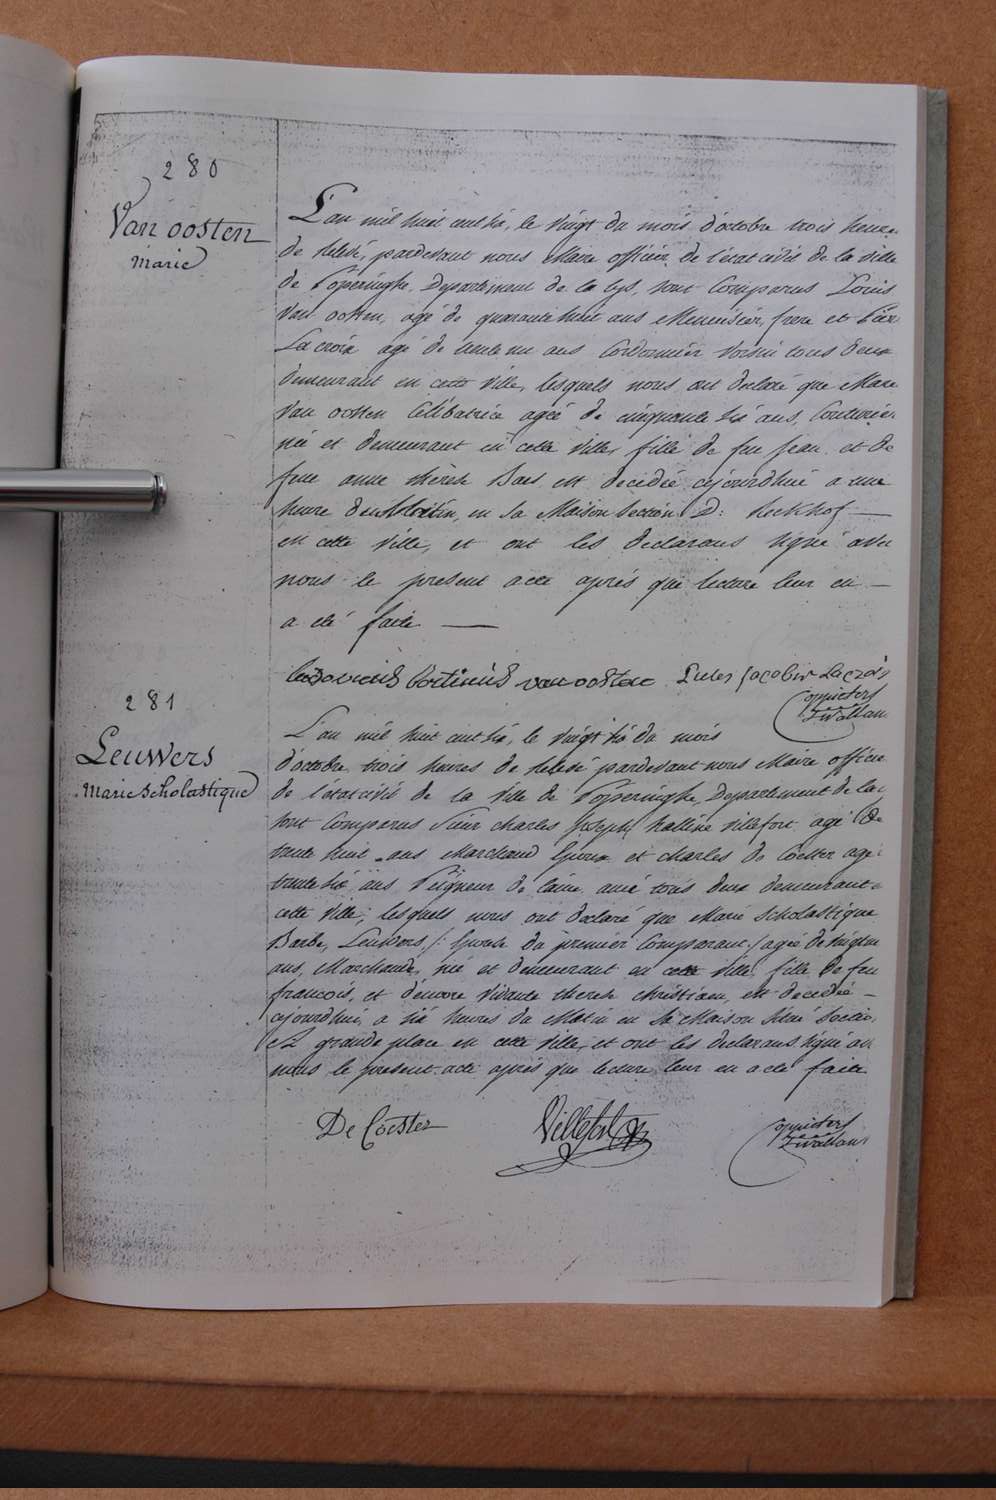 280
Van oosten
Marie
L'an mil huit cent six, le vingt du mois d'octobre trois heures
de relevé, pardevant nous Maire officier de l'état civil de la ville
de Poperinghe, Departement de la Lys, sont Comparus Louis
Van oosten, agé de quarante huit ans Menuisier, frere et Pier
La croix agé de trente un ans Cordonnier Voisin tous deux
demeurant en cette ville, lesquels nous ont declaré que Marie
Van oosten Célibatrice agée de cinquante six ans, Couturier
née et demeurant en cette ville, fille de feu Jean et de
feue anne thérése Baes est decédée cejourdhui a une
heure du Matin, en sa Maison Section D: heckhof —
en cette ville, et ont les declarans signé avec
nous le present acte après que lecture leur en —
a eté faite —
van oosten Jacobus Lacroix
281
Leuwers
Marie Scholastique
L'an mil huit cent six, le vingt six du mois
d'octobre trois heures de relevé pardevant nous Maire officier
de l'état civil de la ville de Poperinghe, Departement de la
sont Comparus Sieur charles Joseph halline villefort agé de
trente huit ans Marchand Epoux et charles de Coester agé
trente six ans Peigneur de laine amé tous deux demeurant
cette ville, lesquels nous ont declaré que Marie Scholastique
Barbe, Leuwers /: Epouse du premier Comparant :/ agée de
ans, Marchande, née et demeurant en cette ville, fille de feu
francois, et d'encore Vivante therese christiaen, est decedée —
cejourdhui a six heures du Matin en sa Maison Situé Section
grande place en cette ville, et ont les declarans signé av
nous le present acte après que lecture leur en a eté faite
De Coester Villefort